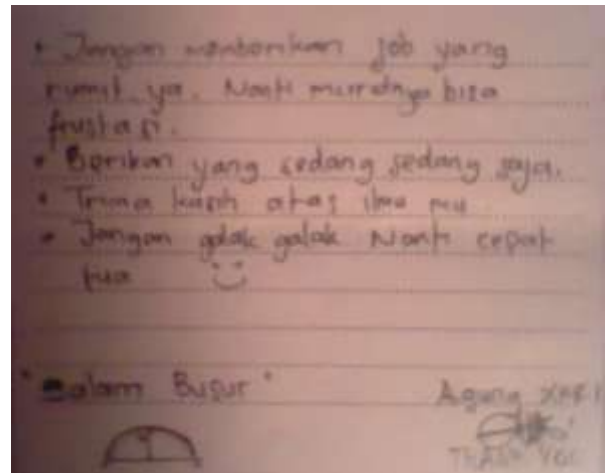 • Jangan job yang
rumit ya. Nanti muridnya bisa
frustasi.
• Berikan yang sedang sedang saja.
• Trima kasih atas ilmu mu
• Jangan galak galak Nanti cepat
tua
"Salam Busur"
Agung
THANK YOU